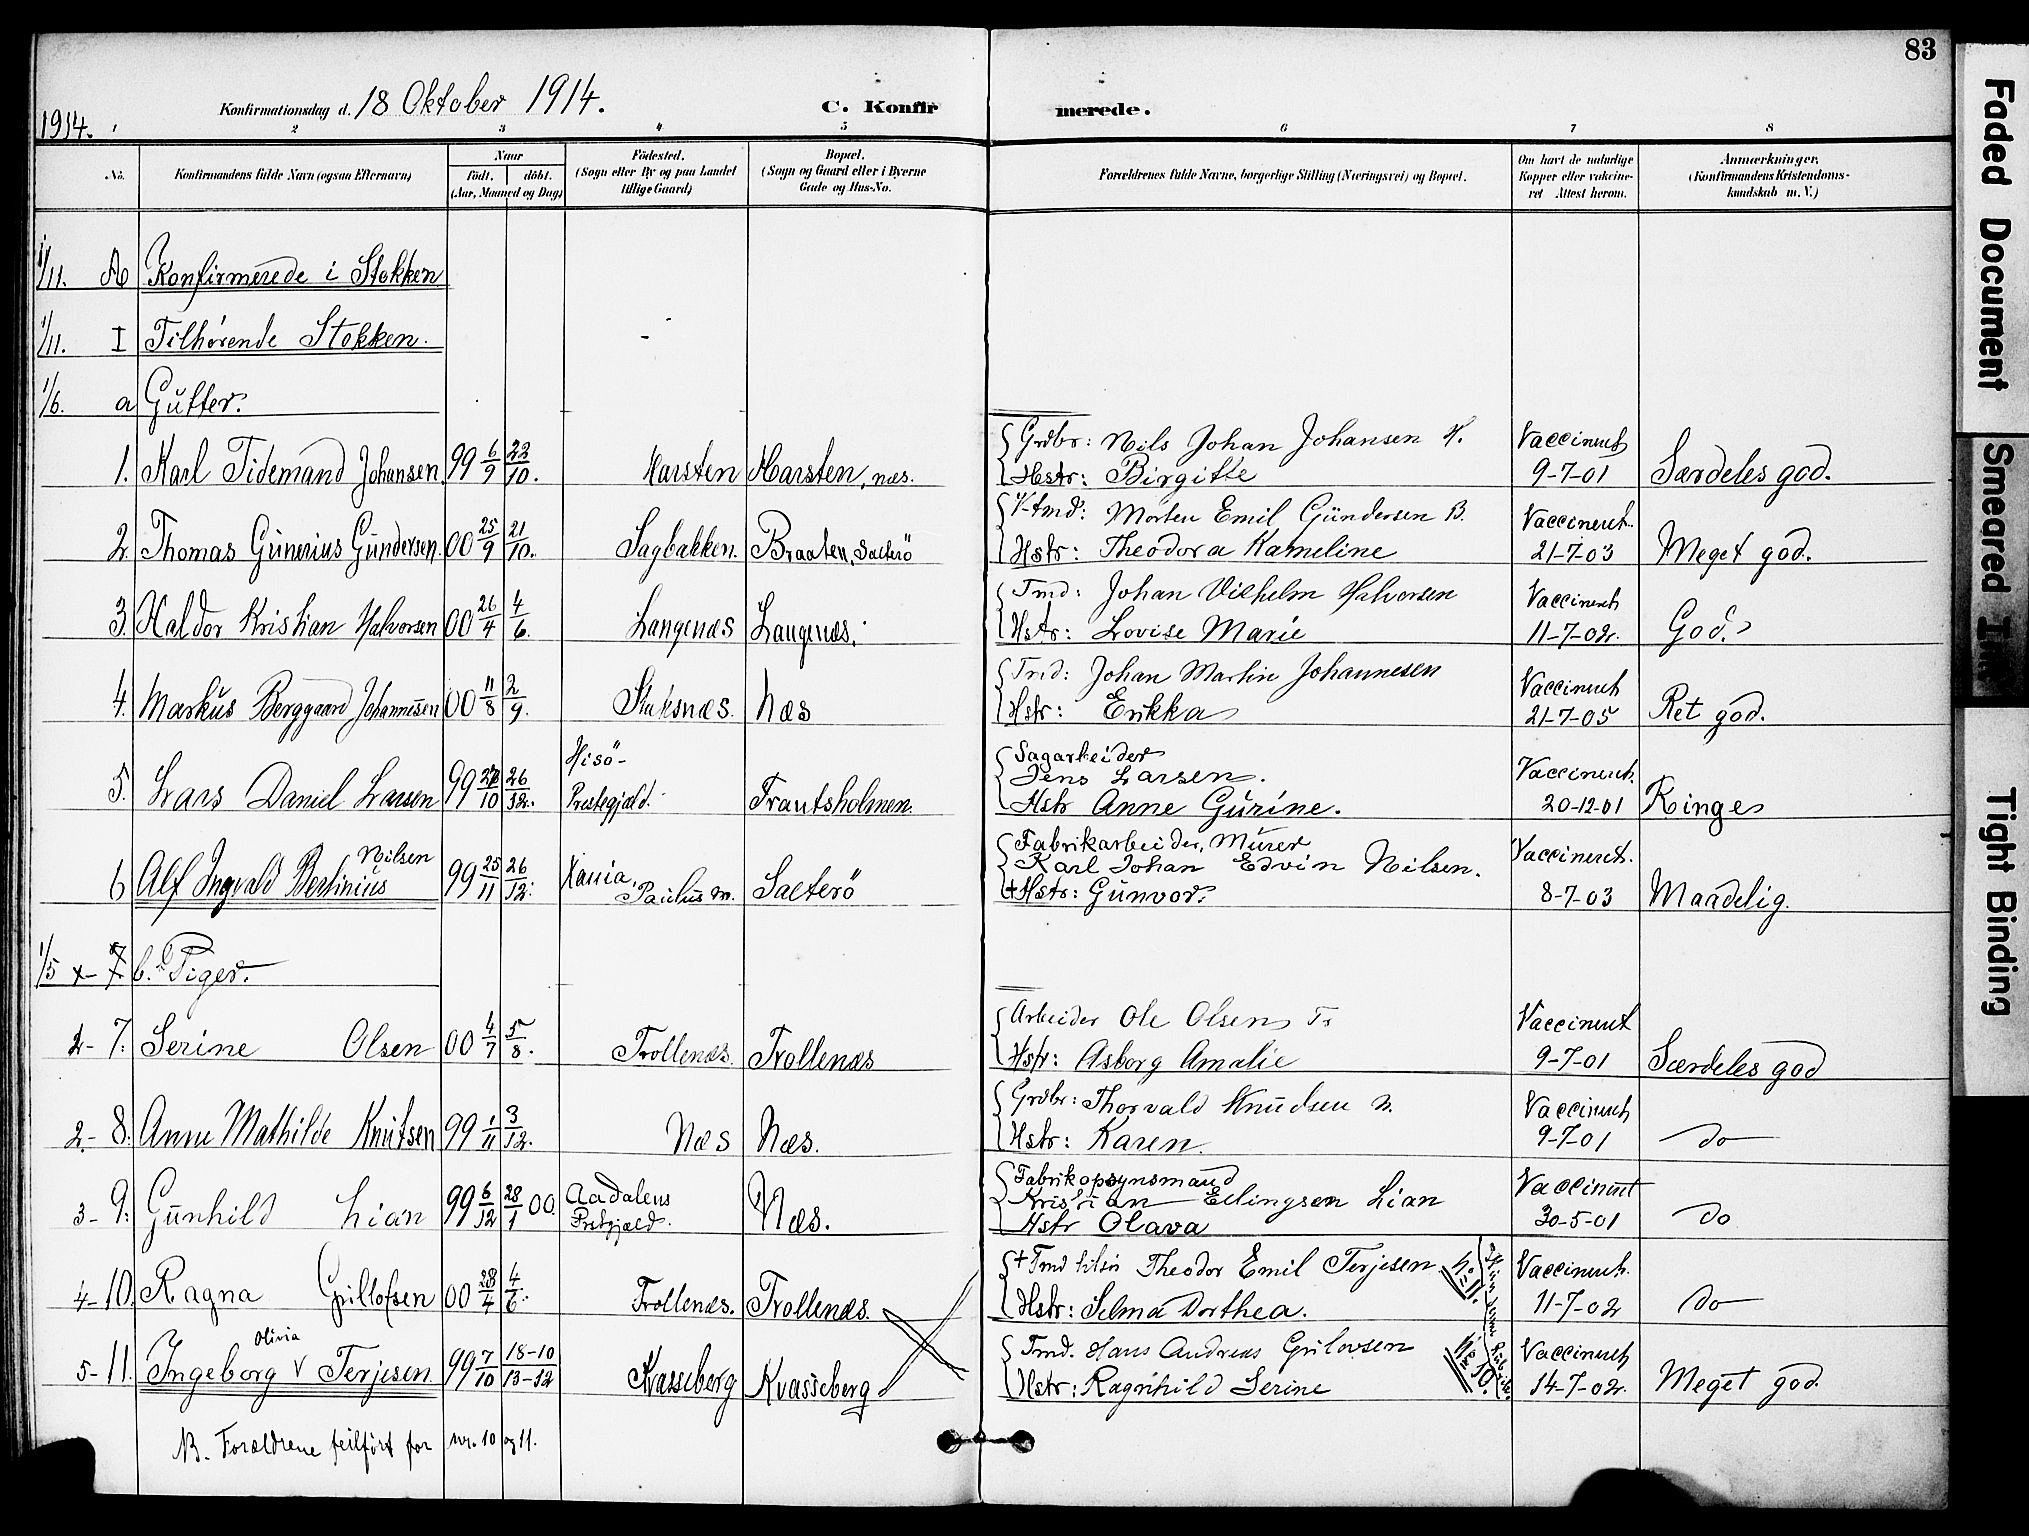 83
1914.
Konfirmationsdag d. 18 Oktober 1914.
C. Konfirmerede.
1 2 3 4 5 6 7 8
No.
Konfirmandens fulde Navn (ogsaa Efternavn)
Naar
født. døbt.
(Aar, Maaned og Dag)
Fødested.
(Sogn eller By og paa Landet
tillige Gaard)
Bopæl.
(Sogn og Gaard eller i Byerne
Gade og Hus-No.
Forældrenes fulde Navne, borgerlige Stilling (Næringsvei) og Bopæl.
Om havt de naturlige
Kopper eller vaccine-
ret Attest herom.
Anmærkninger,
(Konfirmandens Kristendoms-
kundskab m. V.)
1/11. A Konfirmerede i Stokken
1/11. I Tilhørende Stokken.
1/6. a Gutter.
1. Karl Tidemand Johansen 99 6/9 22/10. Harsten Harsten, næs. Grdbr: Nils Johan Johansen H. Vaccineret
Hstr: Birgitte 9-7-01 Særdeles god.
2. Thomas Gunerius Gundersen 00 25/9 21/10. Sagbakken. Braaten, Sæterö Morten Emil Gundersen B. Vaccineret.
Hstr: Theodora Kameline 21-7-03 Meget god.
3. Haldor Kristian Halvorsen 00 26/4 4/6. Langenæs Langenæs. Tmd: Johan Vilhelm Halvorsen Vaccineret
Hstr: Lovise Marie 11-7-02. God.
4. Markus Berggaard Johannesen 00 11/8 2/9. Staksnæs. Næs Tmd: Johan Martin Johannesen Vaccineret
Hstr: Erikka 21-7-05 Ret god.
5. Lars Daniel Larsen 99 /10 26/12. Hisö- Prestegjæld. Frantsholmen. Sagarbeider
Jens Larsen. Vaccineret.
Hstr Anne Gurine. 20-12-01 Ringe
Nilsen
6 Alf Ingvald Bertinius 99 25/11 26/12. Xania, Paulus m. Sæterö Fabrikarbeider, Murer
Karl Johan Edvin Nilsen. Vaccineret.
+Hstr: Gunvor. 8-7-03 Maadelig.
1/5 b. Piger.
7. Serine Olsen 00 4/7 5/8. Trollenæs. Trollenæs Arbeider Ole Olsen Tr Vaccineret
Hstr: Asborg Amalie 9-7-01 Særdeles god
2.- 8. Anne Mathilde Knutsen 99 1/11 3/12. Næs Næs. Grdbr: Thorvald Knudsen N. Vaccineret
Hstr: Karen. 9-7-01 do
3- 9. Gunhild Lian 99 6/12 28/1 00. Aadalens Prstgjæld. Næs. Fabrikopsynsmand
Kristian Ellingsen Lian Vaccineret
Hstr Olava 30-5-01 do
4- 10. Ragna Grillofsen 00 28/4 4/6. Trollenæs. Trollenæs. +Tmd Theodor Emil Terjesen No 11. Vaccineret.
Hstr: Selma Dorthea. 11-7-02 do
Olivia
5- 11. Ingeborg V Terjesen 99 7/10 18-10/13-12 Kvasseberg Kvasseberg Tmd. Hans Andreas Grilovsen No 10. Vaccineret
Hstr: Ragnhild Serine 14-7-02. Meget god.
NB. Forældrene feilført for nr. 10 og 11.
Faded Document
Smeared Ink
Tight Binding